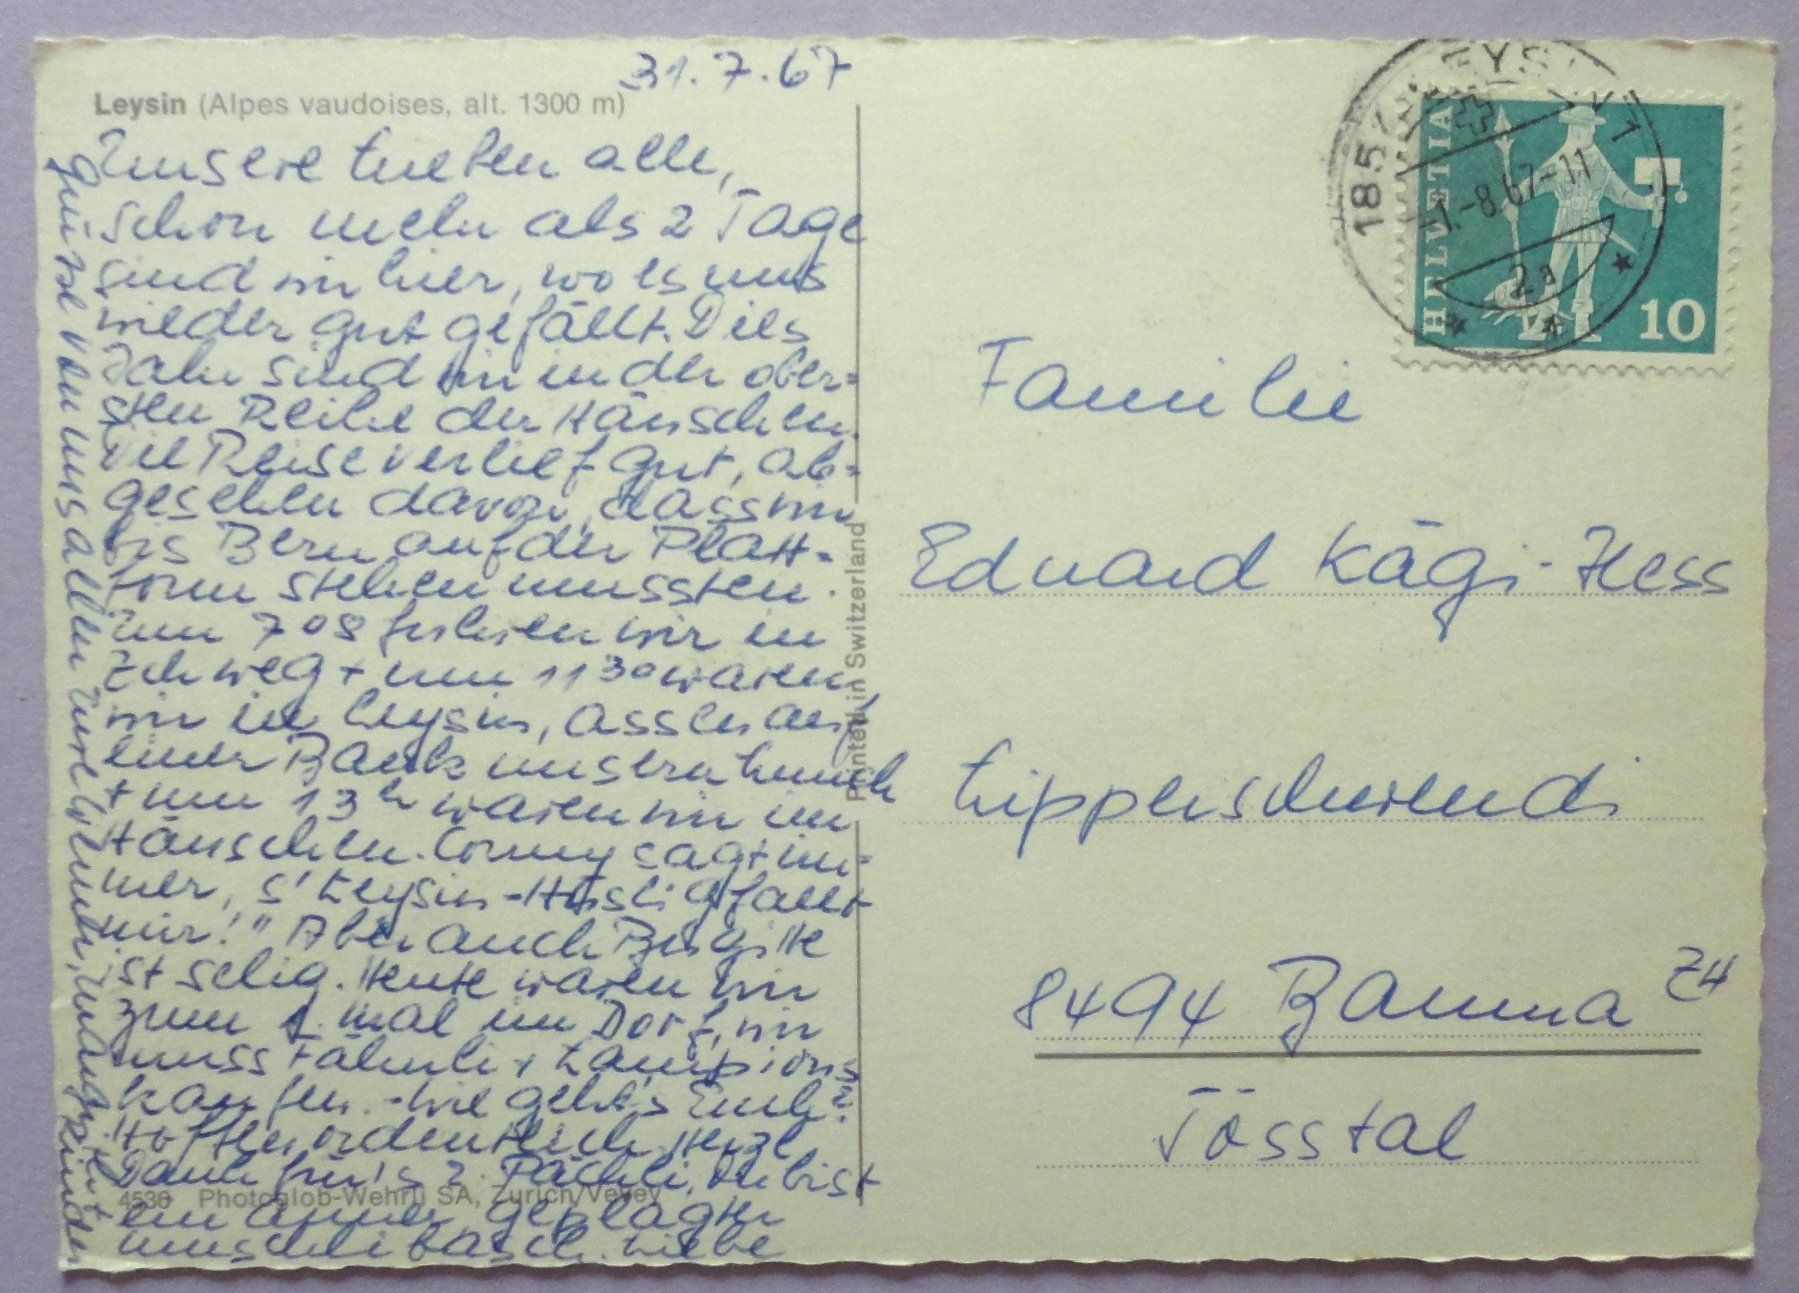 31.7.67
Leysin (Alpes vaudoises, alt. 1300 m)
Unsere Lieben alle,
schon mehr als 2 Tage
sind wir hier, wo es uns
wieder gut gefällt. Dies
Jahr sind wir in der ober-
sten Reihe der Häuschen.
Die Reise verlief gut, ab-
gesehen davon, dass wir
bis Bern auf der Platt-
form stehen mussten.
Um 708 fuhren wir in
Zch weg + um 1130 waren
wir in Leysin, assen auf
einer Bank unsern Lunch
+ um 13h waren wir im
Häuschen. Conny sagt im-
mer, s'Leysin-Husli gfallt
mir!" Aber auch Brigitte
ist selig. Heute waren wir
zum 1. mal im Dorf, wir
muss Fähnli + Lampions
kaufen. - Wie geht's Euch?
Hoffen ordentlich. Herzl
Dank für's 2. Päckli. Du bist
ein armer, geplagter
Liebe
Grüsse von uns allen Eure
Kinder
Printed in Switzerland
4536 Photoglob-Wehrli SA, Zürich/Vevey
1854 LEYSIN 1
-1.-8.67-11
2a
HELVETIA
10
Familie
Eduard Kägi-Hess
Lipperschwendi
8494 Bauma ZH
Tösstal